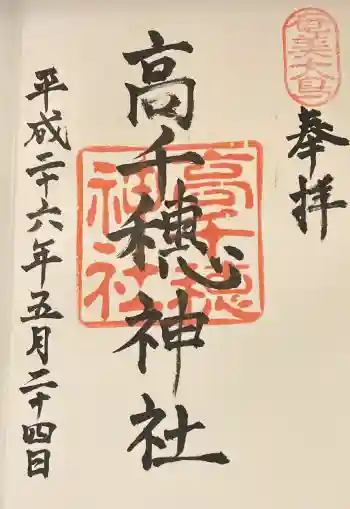 奄美大島
奉拝
高千穂神社
高千穂
神社
平成二十六年五月二十四日